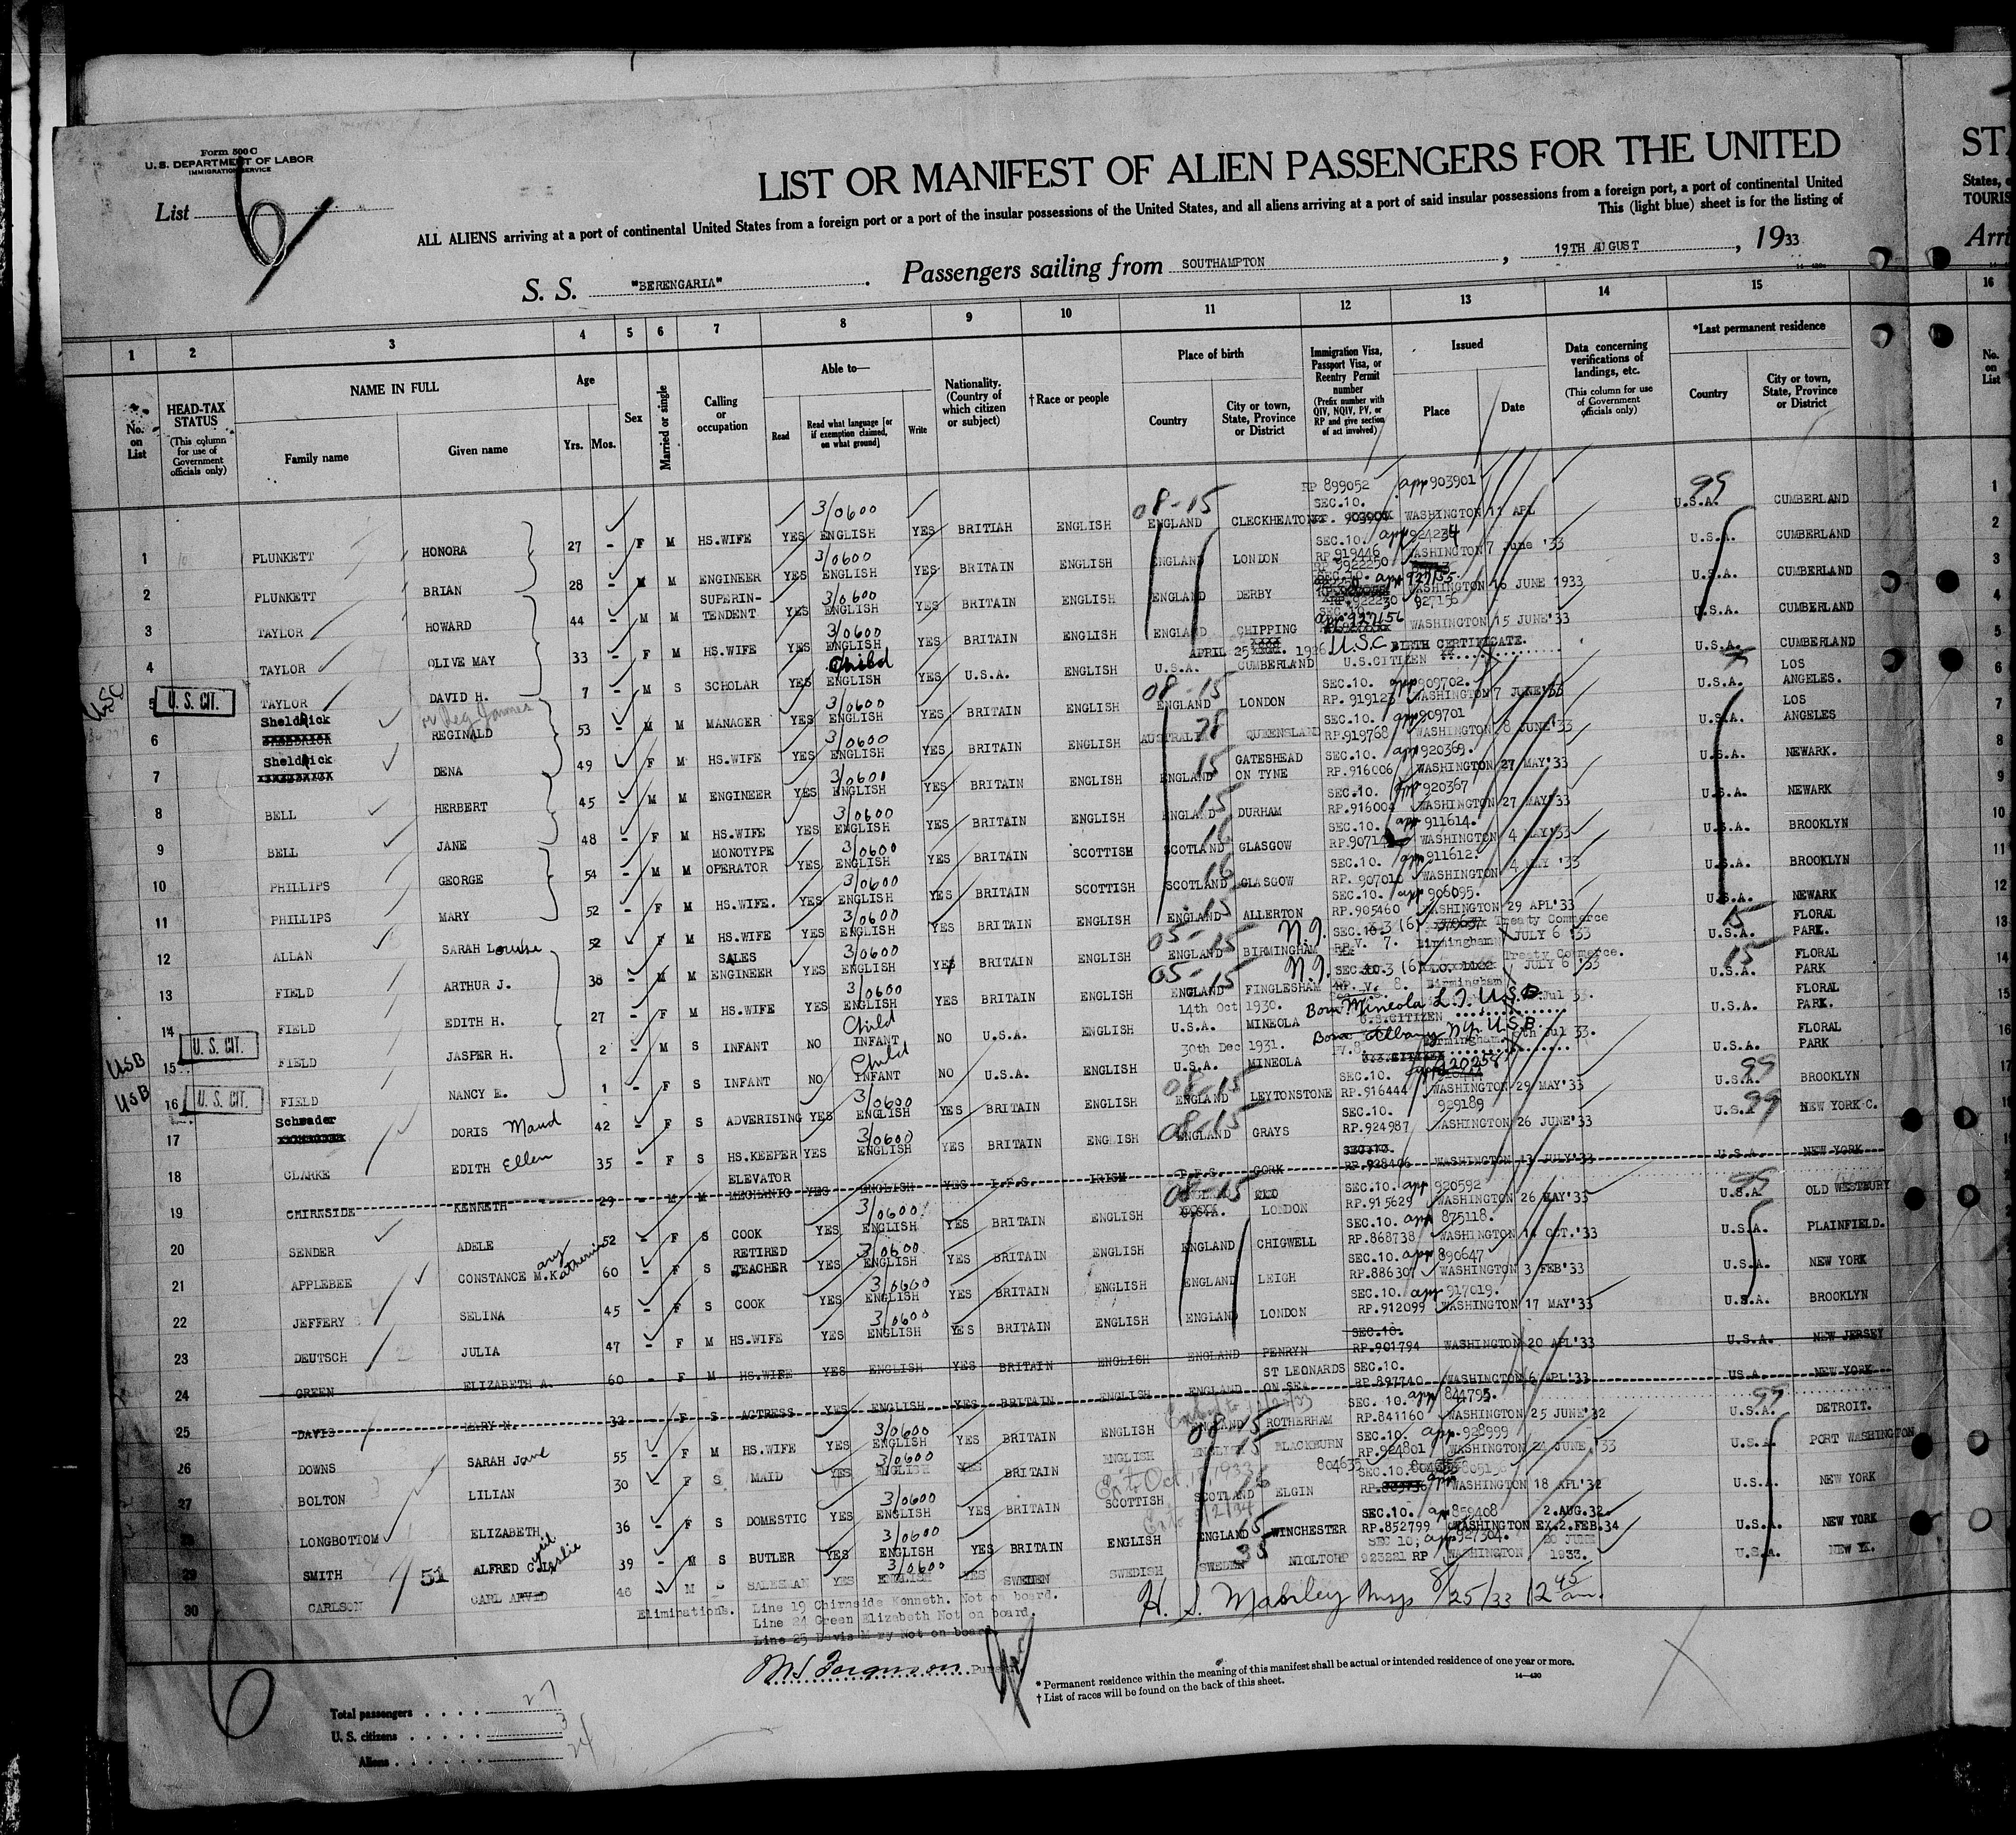 Form 500 C
U. S. DEPARTMENT OF LABOR
IMMIGRATION SERVICE
List 6
LIST OR MANIFEST OF ALIEN PASSENGERS FOR THE UNITED
STA
ALL ALIENS arriving at a port of continental United States from a foreign port or a port of the insular possessions of the United States, and all aliens arriving at a port of said insular possessions from a foreign port, a port of continental United
States,
This (light blue) sheet is for the listing of
TOURIS
S. S. "BERENGARIA". Passengers sailing from SOUTHAMPTON, 19TH AUGUST, 1933
Arri
1 2 3 4 5 6 7 8 9 10 11 12 13 14 15 16
No. on List
HEAD-TAX STATUS (This column for use of Government officials only)
NAME IN FULL
Family name Given name
Age
Yrs. Mos.
Sex
Married or single
Calling or occupation
Able to—
Read Read what language [or if exemption claimed, on what ground] Write
Nationality. (Country of which citizen or subject)
†Race or people
Place of birth
Country City or town, State, Province or District
Immigration Visa, Passport Visa, or Reentry Permit number (Prefix number with QIV, NQIV, PV, or RP and give section of act involved)
Issued
Place Date
Data concerning verifications of landings, etc. (This column for use of Government officials only)
*Last permanent residence
Country City or town, State, Province or District
No. on List
1 PLUNKETT HONORA 27 - F M HS.WIFE YES 3/0600 ENGLISH YES BRITIAH ENGLISH 08-15 ENGLAND CLECKHEATON RP 899052 SEC.10. app 903901 WASHINGTON 11 APL 99 U.S.A. CUMBERLAND
2 PLUNKETT BRIAN 28 - M M ENGINEER YES 3/0600 ENGLISH YES BRITAIN ENGLISH ENGLAND LONDON SEC.10. app 924234 RP 919446 WASHINGTON 7 June '33 U.S.A. CUMBERLAND
3 TAYLOR HOWARD 44 - M M SUPERIN-TENDENT YES 3/0600 ENGLISH YES BRITAIN ENGLISH ENGLAND DERBY app 927155. WASHINGTON 16 JUNE 1933 U.S.A. CUMBERLAND
4 TAYLOR OLIVE MAY 33 - F M HS.WIFE YES 3/0600 ENGLISH YES BRITAIN ENGLISH ENGLAND CHIPPING 922230 927156 app 927156 WASHINGTON 15 JUNE'33 U.S.A. CUMBERLAND
5 U. S. CIT. TAYLOR DAVID H. 7 - M S SCHOLAR YES Child ENGLISH YES U.S.A. ENGLISH APRIL 25 1926 U.S.A. CUMBERLAND U.S.C BIRTH CERTIFICATE. U.S.CITIZEN U.S.A. CUMBERLAND
6 Sheldrick or Reg James REGINALD 53 - M M MANAGER YES 3/0600 ENGLISH YES BRITAIN ENGLISH 08-15 ENGLAND LONDON SEC.10. app 909702. RP. 919123 WASHINGTON 7 JUNE'33 U.S.A. LOS ANGELES.
7 Sheldrick DENA 49 - F M HS.WIFE YES 3/0600 ENGLISH YES BRITAIN ENGLISH AUSTRALIA 78 QUEENSLAND SEC.10. app 909701 RP.919768 WASHINGTON 8 JUNE'33 U.S.A. LOS ANGELES
8 BELL HERBERT 45 - M M ENGINEER YES 3/0601 ENGLISH YES BRITAIN ENGLISH 15 ENGLAND GATESHEAD ON TYNE SEC.10. app 920369. RP.916006 WASHINGTON 27 MAY'33 U.S.A. NEWARK.
9 BELL JANE 48 - F M HS.WIFE YES 3/0600 ENGLISH YES BRITAIN ENGLISH 15 ENGLAND DURHAM SEC.10. app 920367 RP.916004 WASHINGTON 27 MAY'33 U.S.A. NEWARK
10 PHILLIPS GEORGE 54 - M M MONOTYPE OPERATOR YES 3/0600 ENGLISH YES BRITAIN SCOTTISH 16 SCOTLAND GLASGOW SEC.10. app 911614. WASHINGTON 4 MAY'33 U.S.A. BROOKLYN
11 PHILLIPS MARY 52 - F M HS.WIFE. YES 3/0600 ENGLISH YES BRITAIN SCOTTISH 16 SCOTLAND GLASGOW SEC.10. app 911612. RP. 907010 WASHINGTON 4 MAY '33 U.S.A. BROOKLYN
12 ALLAN SARAH Louise 52 - F M HS.WIFE YES 3/0600 ENGLISH YES BRITAIN ENGLISH 15 ENGLAND ALLERTON SEC.10. app 906095. RP.905460 WASHINGTON 29 APL'33 U.S.A. NEWARK
13 FIELD ARTHUR J. 38 - M M SALES ENGINEER YES 3/0600 ENGLISH YES BRITAIN ENGLISH 05-15 ENGLAND BIRMINGHAM 3 (6) V. 7. Treaty Commerce Birmingham JULY 6 '33 15 U.S.A. FLORAL PARK.
14 FIELD EDITH H. 27 - F M HS.WIFE YES 3/0600 ENGLISH YES BRITAIN ENGLISH 05-15 ENGLAND FINGLESHAM 3 (6) V. 8. Treaty Commerce. Birmingham JULY 6 '33 15 U.S.A. FLORAL PARK
USB 15 U. S. CIT. FIELD JASPER H. 2 - M S INFANT NO Child INFANT NO U.S.A. ENGLISH 14th Oct 1930. U.S.A. MINEOLA Born Mineola L.I. U.S.B. U.S.CITIZEN U.S.A. FLORAL PARK.
USB 16 U. S. CIT. FIELD NANCY E. 1 - F S INFANT NO Child INFANT NO U.S.A. ENGLISH 30th Dec 1931. U.S.A. MINEOLA Born Albany N.Y. U.S.B. U.S.A. FLORAL PARK
17 Schrader DORIS Maud 42 - F S ADVERISING YES 3/0600 ENGLISH YES BRITAIN ENGLISH 08-15 ENGLAND LEYTONSTONE SEC.10. RP.916444 WASHINGTON 29 MAY'33 99 U.S.A. BROOKLYN
18 CLARKE EDITH Ellen 35 - F S HS.KEEPER YES 3/0600 ENGLISH YES BRITAIN ENGLISH 08-15 ENGLAND GRAYS SEC.10. 929189 RP.924987 WASHINGTON 26 JUNE'33 99 U.S.A. NEW YORK C.
19 CHIRNSIDE KENNETH 29 - M M ELEVATOR MECHANIC YES ENGLISH YES I.F.S. IRISH I.F.S. CORK SEC.10. RP.928406 WASHINGTON 13 JULY'33 U.S.A. NEW YORK
20 SENDER ADELE 52 - F S COOK YES 3/0600 ENGLISH YES BRITAIN ENGLISH 08-15 ENGLAND LONDON SEC.10. app 920592 RP.915629 WASHINGTON 26 MAY'33 99 U.S.A. OLD WESTBURY
21 APPLEBEE CONSTANCE Mary Katherine 60 - F S RETIRED TEACHER YES 3/0600 ENGLISH YES BRITAIN ENGLISH ENGLAND CHIGWELL SEC.10. app 875118. RP.868738 WASHINGTON 14 OCT.'33 U.S.A. PLAINFIELD.
22 JEFFERY SELINA 45 - F S COOK YES 3/0600 ENGLISH YES BRITAIN ENGLISH ENGLAND LEIGH SEC.10. app 890647 RP.886307 WASHINGTON 3 FEB'33 U.S.A. NEW YORK
23 DEUTSCH JULIA 47 - F M HS.WIFE YES 3/0600 ENGLISH YES BRITAIN ENGLISH ENGLAND LONDON SEC.10. app 917019. RP.912099 WASHINGTON 17 MAY'33 U.S.A. BROOKLYN
24 GREEN ELIZABETH A. 60 - F M HS.WIFE YES ENGLISH YES BRITAIN ENGLISH ENGLAND PENRYN SEC.10. RP.901794 WASHINGTON 20 APL'33 U.S.A. NEW JERSEY
25 DAVIS MARY N. 32 - F S ACTRESS YES ENGLISH YES BRITAIN ENGLISH ENGLAND ST LEONARDS ON SEA SEC.10. RP.897740 WASHINGTON 6 APL'33 U.S.A. NEW YORK
26 DOWNS SARAH Jane 55 - F M HS.WIFE YES 3/0600 ENGLISH YES BRITAIN ENGLISH 08-15 ENGLAND ROTHERHAM SEC. 10. app 844795. RP.841160 WASHINGTON 25 JUNE'32 99 U.S.A. DETROIT.
27 BOLTON LILIAN 30 - F S MAID YES 3/0600 ENGLISH YES BRITAIN ENGLISH 15 ENGLAND BLACKBURN SEC.10. app. 928999 RP.924801 WASHINGTON 24 JUNE '33 U.S.A. PORT WASHINGTON
28 LONGBOTTOM ELIZABETH 36 - F S DOMESTIC YES 3/0600 ENGLISH YES BRITAIN SCOTTISH 16 SCOTLAND ELGIN 804635 SEC.10. WASHINGTON 18 APL'32 U.S.A. NEW YORK
29 SMITH 51 ALFRED Cyril Leslie 39 - M S BUTLER YES 3/0600 ENGLISH YES BRITAIN ENGLISH ENGLAND 15 WINCHESTER SEC.10. app 859408 2.AUG.32. RP.852799 WASHINGTON EX.2.FEB.34 U.S.A. NEW YORK
30 CARLSON CARL ARVID 46 - M S SALESMAN YES 3/0600 ENGLISH YES SWEDEN SWEDISH 35 SWEDEN SEC 10, app 927504. 923221 RP WASHINGTON 20 JUNE 1933. U.S.A. NEW YK.
Eliminations. Line 19 Chirnside Kenneth. Not on board.
Line 24 Green Elizabeth Not on board.
Line 25 Davis M ry Not on board.
8/25/33 12 45 am.
Purser
6
* Permanent residence within the meaning of this manifest shall be actual or intended residence of one year or more.
† List of races will be found on the back of this sheet.
14—430
Total passengers . . . . . 27
U. S. citizens . . . . . . 3
Aliens . . . . . . 24